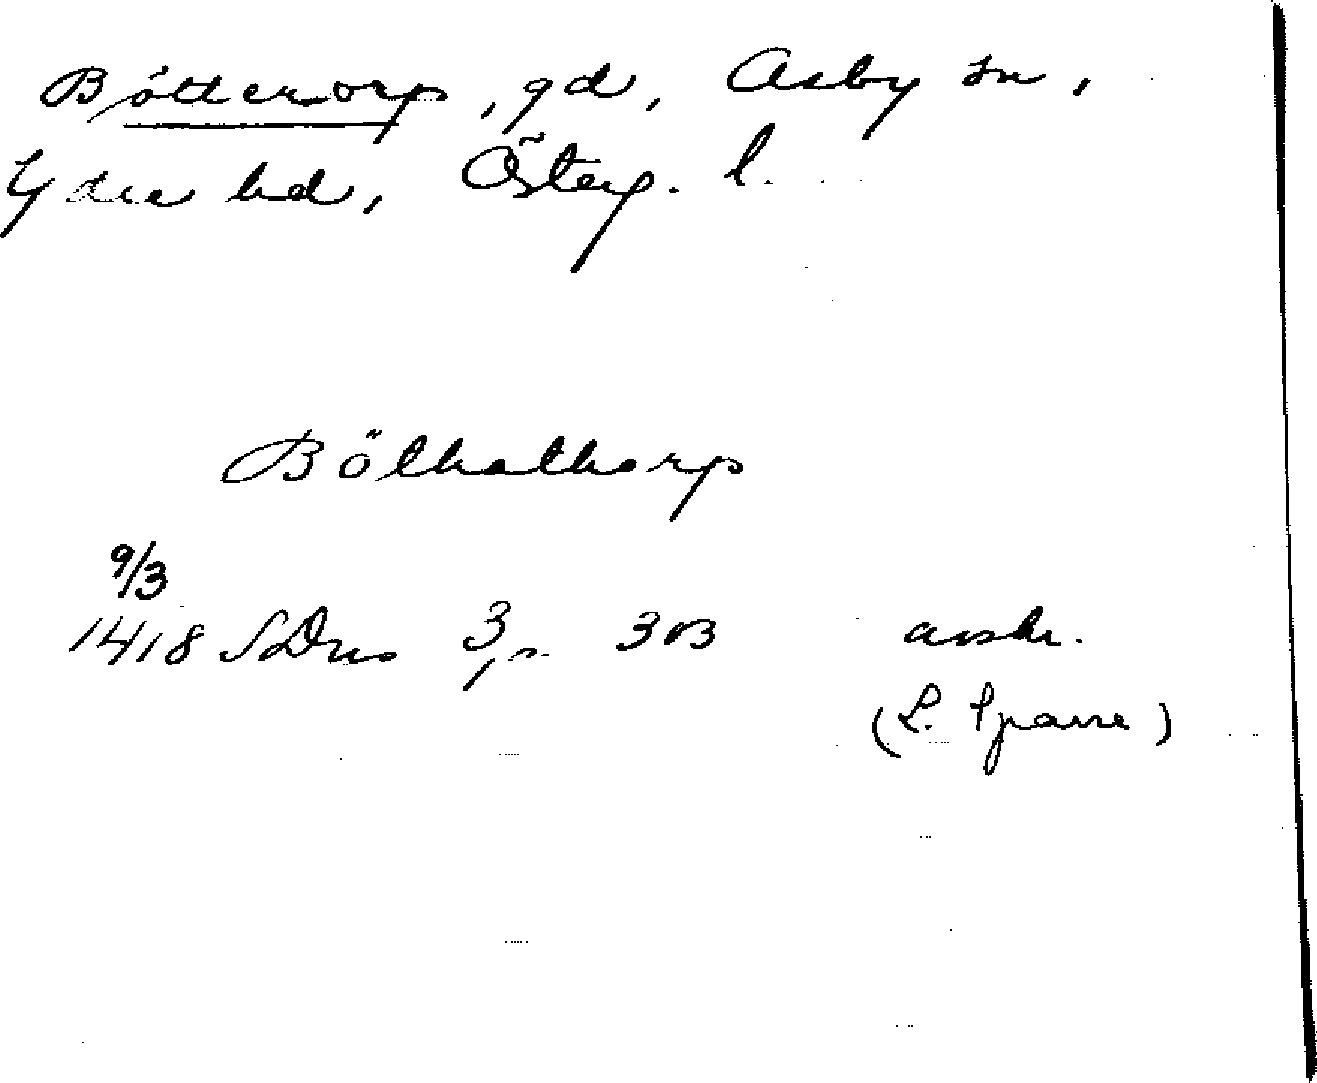 Böttetorp, gd, Asby sn,
Ydre hd, Österg. l.
Böthathorp
9/3
1418 SDns 3, s. 303 avskr.
(L. Sparre)